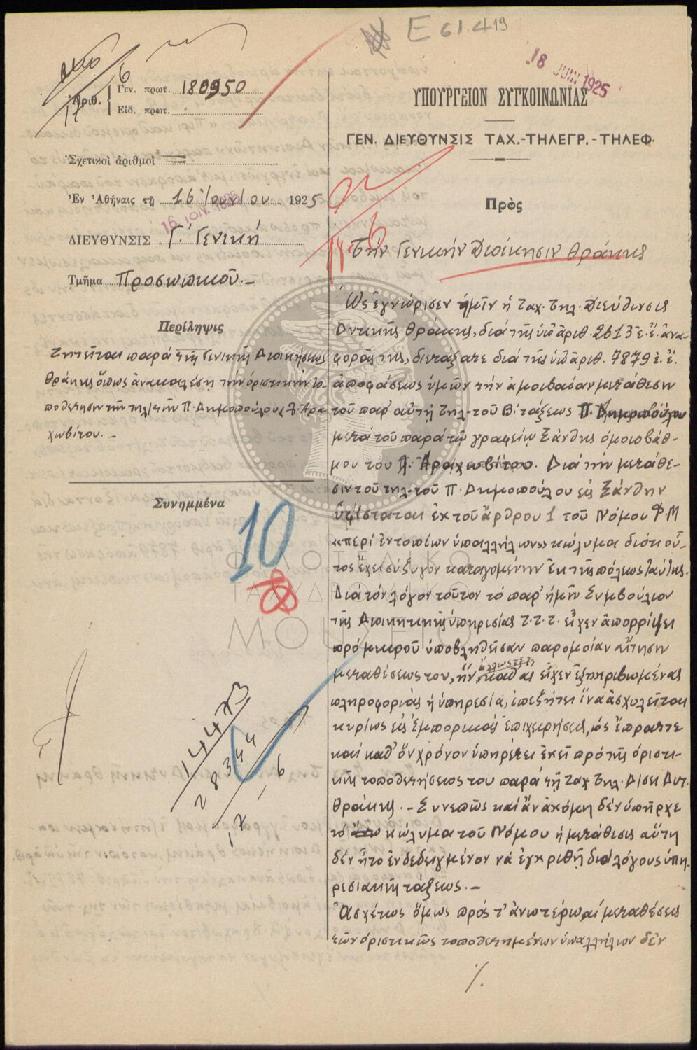 Ε 61.419
18 JUIN 1925
Ἀριθ. Γεν. πρωτ. 180950
Εἰδ. πρωτ.
Σχετικοὶ ἀριθμοὶ
Ἐν Ἀθήναις τῇ 16 Ἰουνίου 1925
ΔΙΕΥΘΥΝΣΙΣ Γ΄. Γενική
Τμῆμα Προσωπικοῦ.-
Περίληψις
Ζητεῖται παρὰ τῆς Γενικῆς Διοικήσεως
Θράκης ὅπως ἀνακαλέσῃ τὴν ὁριστικὴν το
ποθέτησιν τῶν τηλ/τῶν Π. Δημοπούλου, Α. Ἀρα
χωβίτου.-
Συνημμένα
10
14473
28344
17-6
ΥΠΟΥΡΓΕΙΟΝ ΣΥΓΚΟΙΝΩΝΙΑΣ
ΓΕΝ. ΔΙΕΥΘΥΝΣΙΣ ΤΑΧ.-ΤΗΛΕΓΡ.-ΤΗΛΕΦ.
Πρὸς
Τὴν Γενικὴν Διοίκησιν Θράκης
Ὡς ἐγνώρισεν ἡμῖν ἡ Ταχ. Τηλ. Διεύθυνσις
Δυτικῆς Θράκης, διὰ τῆς ὑπ' ἀριθ. 2613 ἐ. ἔ. ἀνα
φορᾶς της, διετάξατε διὰ τῆς ὑπ' ἀριθ. 7879 ἐ. ἔ.
ἀποφάσεως ὑμῶν τὴν ἀμοιβαίαν μετάθεσιν
τοῦ παρ' αὐτῇ τηλ. τοῦ Β. τάξεως Π. Δημοπούλου
μετὰ τοῦ παρὰ τῷ γραφείῳ Ξάνθης ὁμοιοβάθ
μου του Α. Ἀραχωβίτου. Διὰ τὴν μετάθε
σιν τοῦ τηλ. τοῦ Π. Δημοπούλου εἰς Ξάνθην
ὑφίσταται ἐκ τοῦ ἄρθρου 1 τοῦ Νόμου ΦΜ
"περὶ ἐντοπίων ὑπαλλήλων" κώλυμα διότι οὗ
τος ἔχει σύζυγον καταγομένην ἐκ τῆς πόλεως ταύτης.
Διὰ τὸν λόγον τοῦτον τὸ παρ' ἡμῖν Συμβούλιον
τῆς Διοικητικῆς ὑπηρεσίας Τ.Τ.Τ. εἶχεν ἀπορρίψει
πρὸ μικροῦ ὑποβληθεῖσαν παρομοίαν αἴτησιν
μεταθέσεώς του, ἣν καθ' ἃς εἶχεν ἐξηκριβωμένας
πληροφορίας ἡ ὑπηρεσία, ἐπεζήτει ἵνα ἀσχολεῖται
κυρίως εἰς ἐμπορικὰς ἐπιχειρήσεις, ὡς ἔπραττε
καὶ καθ' ὃν χρόνον ὑπηρέτει ἐκεῖ πρὸ τῆς ὁριστι
κῆς τοποθετήσεώς του παρὰ τῇ Ταχ. Τηλ. Δ/σει Δυτ.
Θράκης.- Συνεπῶς καὶ ἂν ἀκόμη δὲν ὑπῆρχε
τὸ κώλυμα τοῦ Νόμου ἡ μετάθεσις αὕτη
δὲν ἦτο ἐνδεδειγμένον νὰ ἐγκριθῇ διὰ λόγους ὑπη
ρεσιακῆς τάξεως.-
Ἀσχέτως ὅμως πρὸς τ' ἀνωτέρω αἱ μεταθέσεις
τῶν ὁριστικῶς τοποθετημένων ὑπαλλήλων δὲν
./.
ΦΙΛΟΤΕΛΙΚΟ
ΤΑΧΥΔΡΟΜΙΚΟ
ΜΟΥΣΕΙΟ